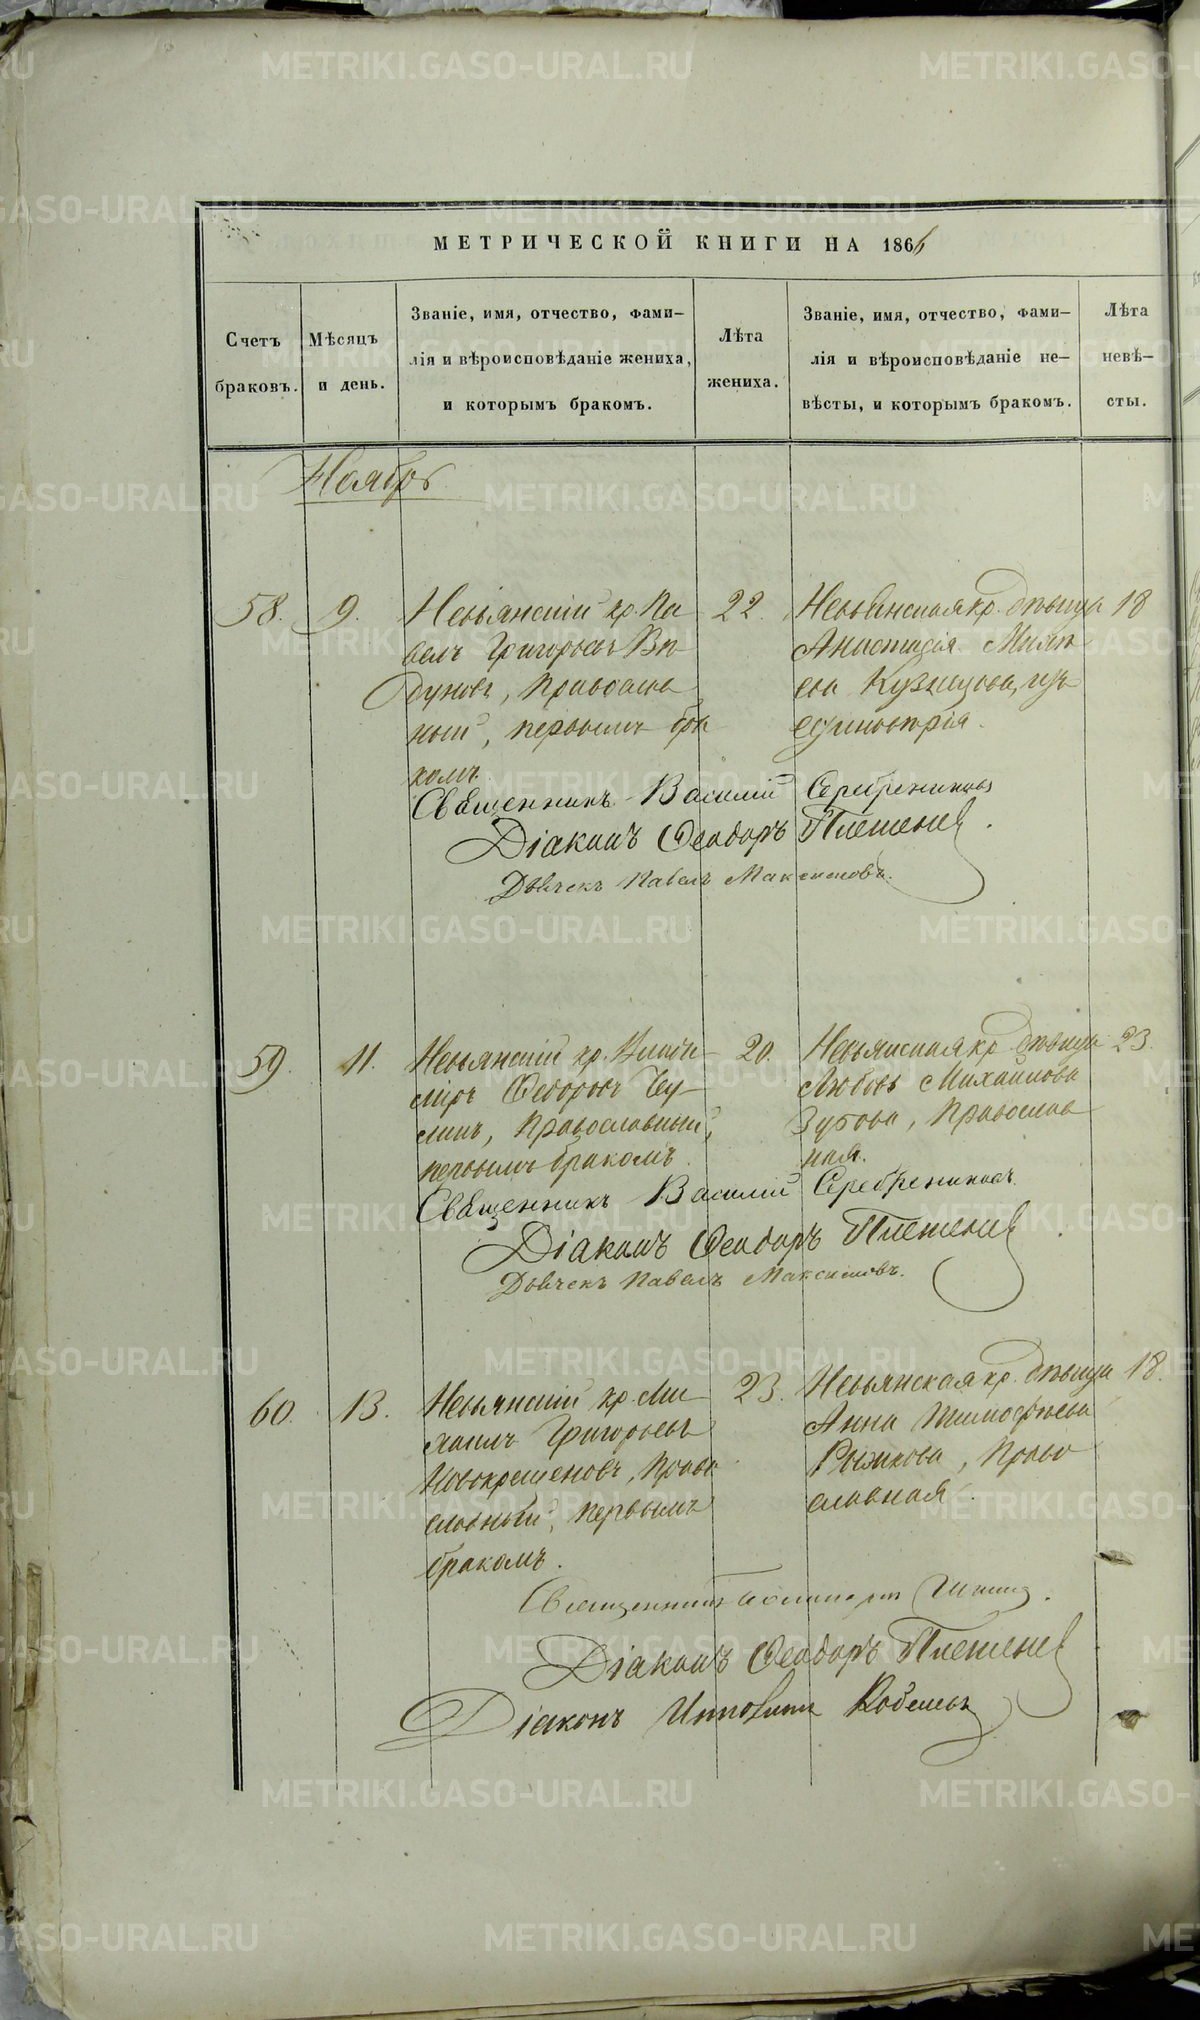 МЕТРИЧЕСКОЙ КНИГИ НА 1866
Счетъ браковъ.
Мѣсяцъ и день.
Званіе, имя, отчество, фами-
лія и вѣроисповѣданіе жениха,
и которымъ бракомъ.
Лѣта жениха.
Званіе, имя, отчество, фами-
лія и вѣроисповѣданіе не-
вѣсты, и которымъ бракомъ.
Лѣта невѣ-
сты.
Ноябрь
58. 9. Невьянскій кр. Па
велъ Григорьевъ Вѣ-
дуновъ, Православ
ный, первымъ бра
комъ.
22.
Невьянская кр. дѣвица
Анастасія
Кузнецова, изъ
единовѣрія.
18
Священникъ Василій Серебренниковъ
Діаконъ Ѳеодоръ
Дьячекъ Павелъ Максимовъ.
59. 11. Невьянскій кр. Влади
міръ Ѳедоровъ
Православный,
первымъ бракомъ.
20.
Невьянская кр. дѣвица
Любовь Михайлова
Зубова, Православ
ная.
23.
Священникъ Василій Серебренниковъ.
Діаконъ Ѳеодоръ
Дьячекъ Павелъ Максимовъ.
60. 13. Невьянскій кр. Ми
хаилъ Григорьевъ
Новокрещеновъ, Право
славный, первымъ
бракомъ.
23.
Невьянская кр. дѣвица
Анна Тимофѣева
Рыжкова, Право
славная.
18.
Священникъ
Діаконъ Ѳеодоръ
Діаконъ
METRIKI.GASO-URAL.RU